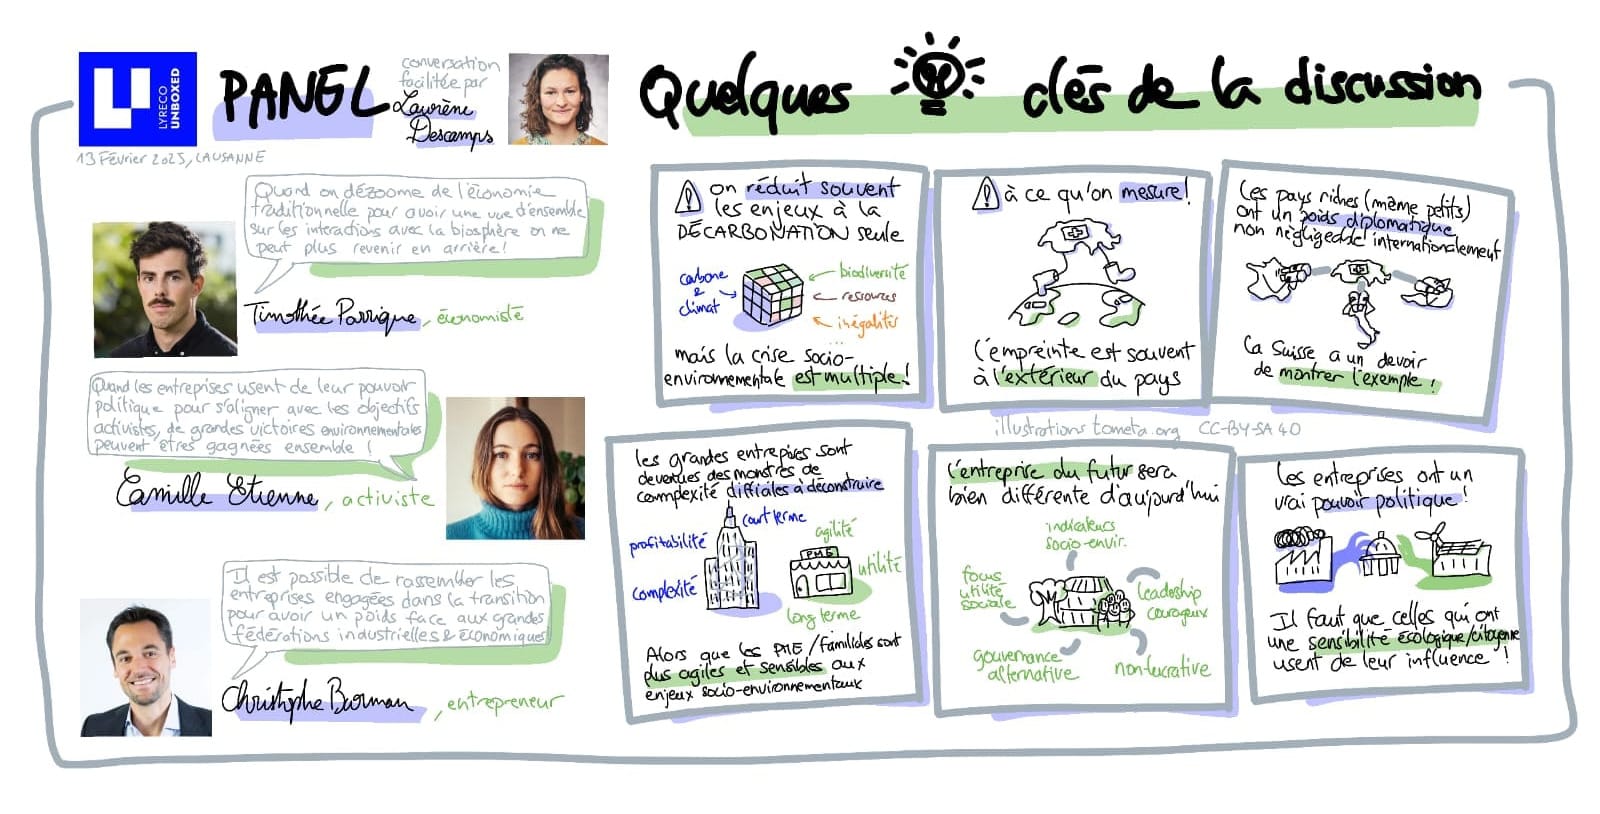 LYRECO
UNBOXED
PANEL
conversation
facilitée par
Laurène
Descamps
13 Février 2025, LAUSANNE
Quand on dézoome de l'économie
traditionnelle pour avoir une vue d'ensemble
sur les interactions avec la biosphère on ne
peut plus revenir en arrière!
Timothée Parrique, économiste
Quand les entreprises usent de leur pouvoir
politique pour s'aligner avec les objectifs
activistes, de grandes victoires environnementales
peuvent êtres gagnées ensemble !
Camille Etienne, activiste
Il est possible de rassembler les
entreprises engagées dans la transition
pour avoir un poids face aux grandes
fédérations industrielles & économiques
Christophe Barman, entrepreneur
Quelques clés de la discussion
on réduit souvent
les enjeux à la
DÉCARBONATION seule
carbone
&
climat
biodiversité
ressources
inégalités
...
mais la crise socio-
environnementale est multiple!
à ce qu'on mesure!
l'empreinte est souvent
à l'extérieur du pays
Les pays riches (même petits)
ont un poids diplomatique
non négligeable internationalement
La Suisse a un devoir
de montrer l'exemple !
illustrations tometa.org CC-BY-SA 4.0
les grandes entrepises sont
devenues des monstres de
commplexité difficiles à déconstruire
court terme
profitabilité
complexité
agilité
PME
utilité
long terme
Alors que les PME / familiales sont
plus agiles et sensibles aux
enjeux socio-environnementaux
l'entreprise du futur sera
bien différente d'aujourd'hui
indicateurs
socio-envir.
focus
utilité
sociale
leadership
courageux
gouvernance
alternative
non-lucrative
Les entreprises ont un
vrai pouvoir politique !
Il faut que celles qui ont
une sensibilité écologique/citoyenne
usent de leur influence !